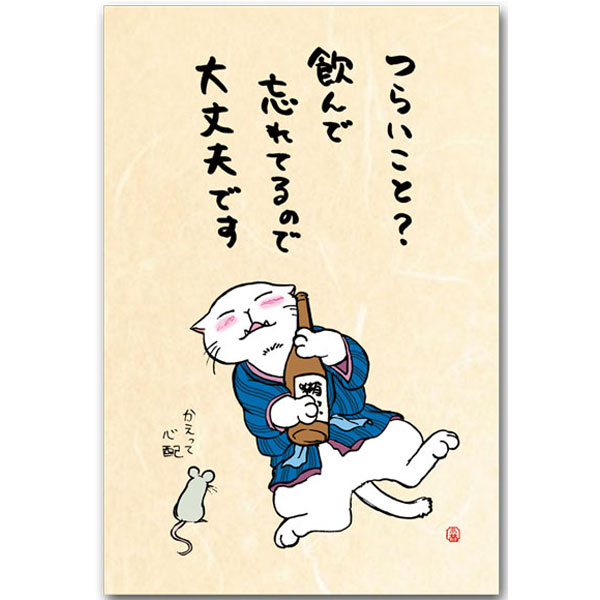 つらいこと？
飲んで
忘れてるので
大丈夫です
かえって
心配